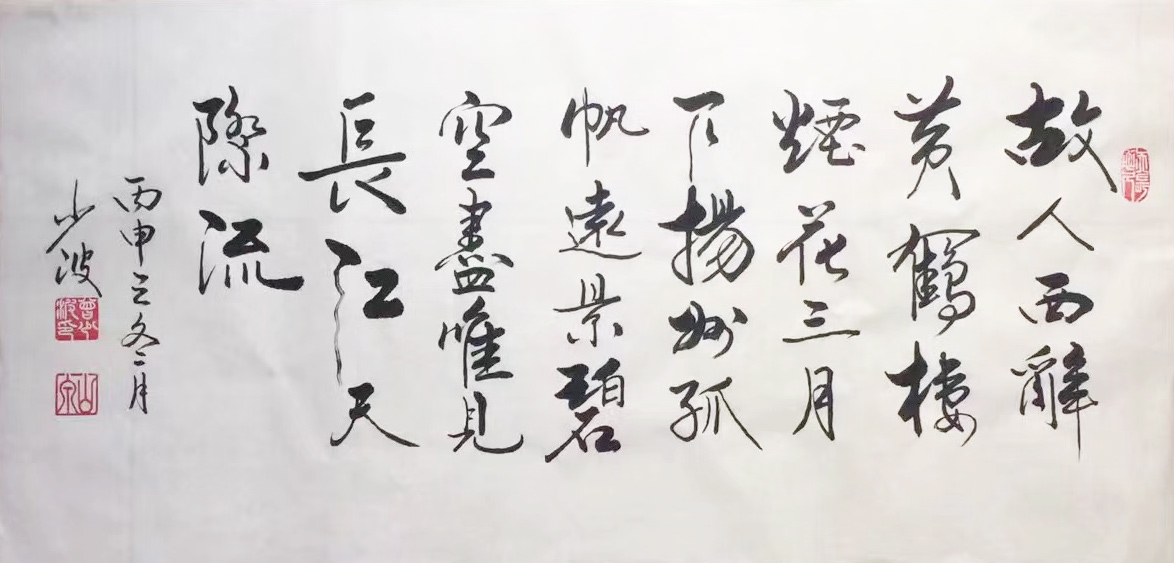 故人西辭
黃鶴樓
煙花三月
下揚州孤
帆遠景碧
空盡唯見
長江天
際流
丙申之冬二月
少波
曾少波印